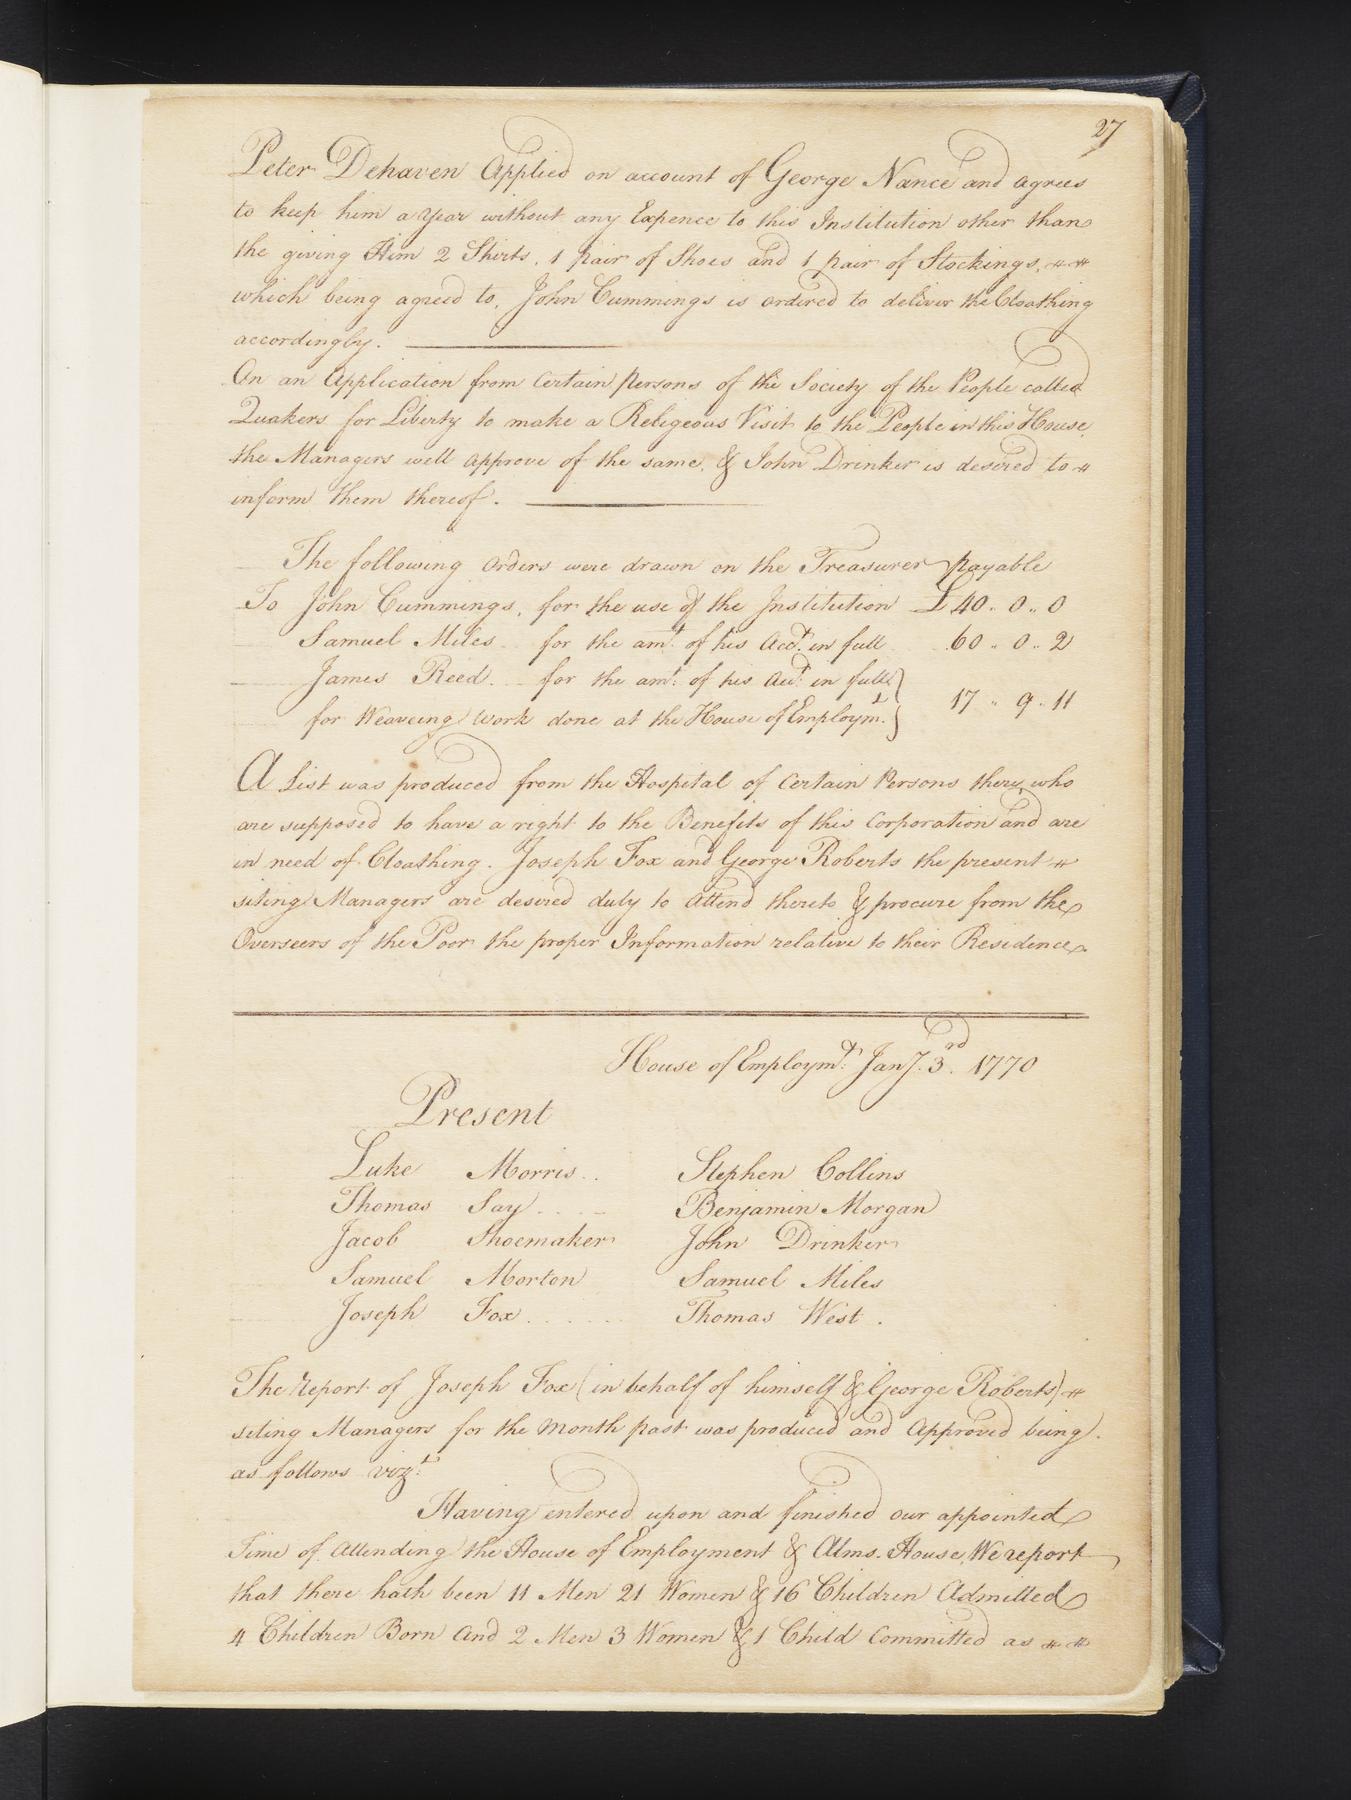 27
Peter Dehaven Applied on account of George Nance and agrees
to keep him a Year without any Expence to this Institution other than
the giving Him 2 Shirts, 1 pair of Shoes and 1 pair of Stockings,
which being agreed to, John Cummings is ordered to deliver the Cloathing
accordingly.
On an Application from Certain persons of the Society of the People called
Quakers for Liberty to make a Religeous Visit to the People in this House,
the Managers well approve of the same, & John Drinker is desired to
inform them thereof.
The following Orders were drawn on the Treasurer payable
To John Cummings, for the use of the Institution £40.. 0.. 0
Samuel Miles .. for the amt. of his Acct. in full 60 .. 0 .. 2
James Reed .. for the amt. of his Acct. in full }
for Weaveing Work done at the House of Employmt. } 17 .. 9 .. 11
A List was produced from the Hospital of Certain Persons there, who
are supposed to have a right to the Benefits of this Corporation and are
in need of Cloathing. Joseph Fox and George Roberts the present
siting Managers are desired duly to Attend thereto & procure from the
Overseers of the Poor the proper Information relative to their Residence.
House of Employmt. Jany. 3rd. 1770
Present
Luke Morris .. Stephen Collins
Thomas Say .... Benjamin Morgan
Jacob Shoemaker John Drinker
Samuel Morton Samuel Miles
Joseph Fox ...... Thomas West .
The Report of Joseph Fox (in behalf of himself & George Roberts)
siting Managers for the Month past was produced and Approved being
as follows vizt.
Having entered upon and finished our appointed
Time of Attending the House of Employment & Alms-House, We report
that there hath been 11 Men 21 Women & 16 Children Admitted
4 Children Born and 2 Men 3 Women & 1 Child Committed as